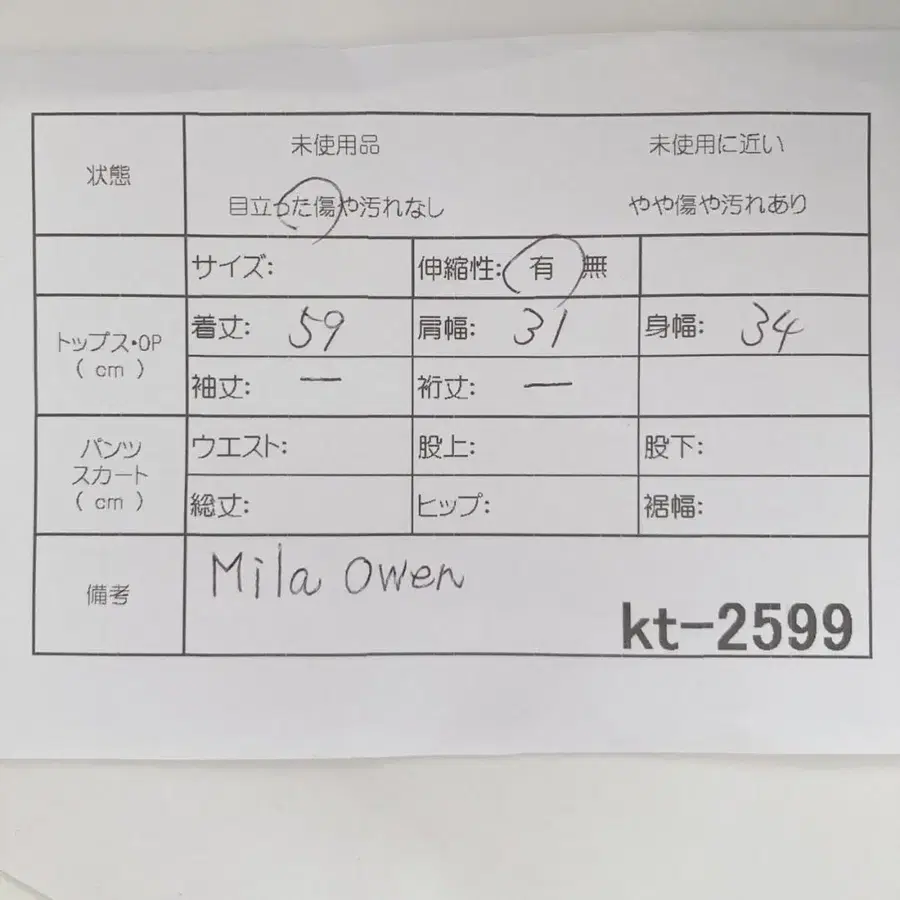 状態
未使用品 未使用に近い
目立った傷や汚れなし やや傷や汚れあり
サイズ: 伸縮性: 有 無
トップス・OP
( cm )
着丈: 59 肩幅: 31 身幅: 34
袖丈: ー 裄丈: ー
パンツ
スカート
( cm )
ウエスト: 股上: 股下:
総丈: ヒップ: 裾幅:
備考
Mila Owen
kt-2599